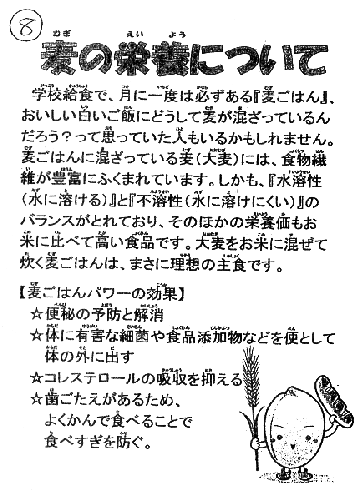 8
麦の栄養について
学校給食で、月に一度は必ずある『麦ごはん』、
おいしい白いご飯にどうして麦が混ざっているん
だろう？って思っていた人もいるかもしれません。
麦ごはんに混ざっている麦(大麦)には、食物繊
維が豊富にふくまれています。しかも、『水溶性
(水に溶ける)』と『不溶性(水に溶けにくい)』の
バランスがとれており、そのほかの栄養価もお
米に比べて高い食品です。大麦をお米に混ぜて
炊く麦ごはんは、まさに理想の主食です。
【麦ごはんパワーの効果】
☆便秘の予防と解消
☆体に有害な細菌や食品添加物などを便として
体の外に出す
☆コレステロールの吸収を抑える
☆歯ごたえがあるため、
よくかんで食べることで
食べすぎを防ぐ。